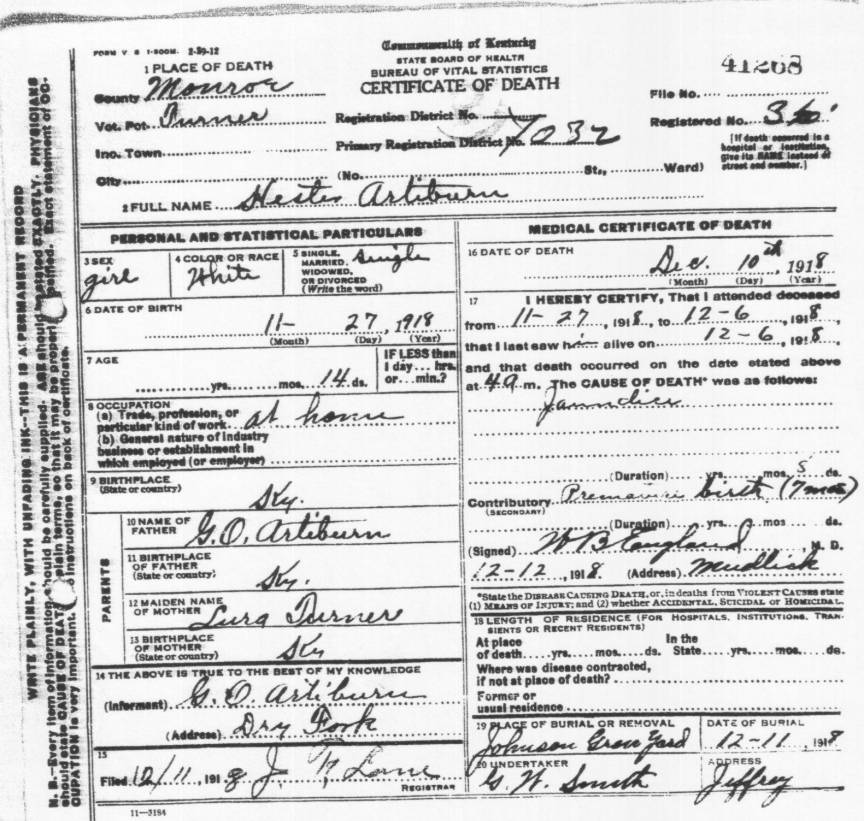 FORM V. S. 1-500M. 2-29-12
Commonwealth of Kentucky
STATE BOARD OF HEALTH
BUREAU OF VITAL STATISTICS
CERTIFICATE OF DEATH
41268
1 PLACE OF DEATH
County Monroe
Vot. Pct. Turner
Inc. Town
City (No. St., Ward)
Registration District No.
Primary Registration District No. 7032
File No.
Registered No.
[If death occurred in a hospital or institution, give its NAME instead of street and number.]
2 FULL NAME Hester Artiburn
PERSONAL AND STATISTICAL PARTICULARS
3 SEX girl
4 COLOR OR RACE White
5 SINGLE, MARRIED, WIDOWED, OR DIVORCED (Write the word) Single
6 DATE OF BIRTH
11- 27, 1918
(Month) (Day) (Year)
7 AGE
yrs. mos. 14 ds.
IF LESS than 1 day... hrs. or... min.?
8 OCCUPATION
(a) Trade, profession, or particular kind of work at home
(b) General nature of industry
business or establishment in
which employed (or employer)
9 BIRTHPLACE
(State or country) Ky.
PARENTS
10 NAME OF FATHER G. O. Artiburn
11 BIRTHPLACE OF FATHER (State or country) Ky.
12 MAIDEN NAME OF MOTHER Lura Turner
13 BIRTHPLACE OF MOTHER (State or country) Ky
14 THE ABOVE IS TRUE TO THE BEST OF MY KNOWLEDGE
(Informant) G. O. Artiburn
(Address) Dry Fork
15
Filed 12/11, 1918 J. Lane
REGISTRAR
11-3184
MEDICAL CERTIFICATE OF DEATH
16 DATE OF DEATH
Dec. 10th, 1918
(Month) (Day) (Year)
17 I HEREBY CERTIFY, That I attended deceased
from 11-27, 1918, to 12-6, 1918,
that I last saw him alive on 12-6, 1918,
and that death occurred on the date stated above
at m. The CAUSE OF DEATH* was as follows:
Jaundice
(Duration) yrs. mos. 5 ds.
Contributory Premature birth (7 mos)
(SECONDARY)
(Duration) yrs. mos ds.
(Signed) W B England M. D.
12-12, 1918 (Address) Mudlick
*State the DISEASE CAUSING DEATH, or, in deaths from VIOLENT CAUSES state
(1) MEANS OF INJURY; and (2) whether ACCIDENTAL, SUICIDAL OR HOMICIDAL.
18 LENGTH OF RESIDENCE (FOR HOSPITALS, INSTITUTIONS, TRANSIENTS OR RECENT RESIDENTS)
At place of death yrs. mos. ds. In the State yrs. mos. ds.
Where was disease contracted,
if not at place of death?
Former or
usual residence
19 PLACE OF BURIAL OR REMOVAL Johnson Grave Yard
DATE OF BURIAL 12-11, 1918
20 UNDERTAKER G. W. Smith
ADDRESS Jeffrey
WRITE PLAINLY, WITH UNFADING INK--THIS IS A PERMANENT RECORD
N. B.--Every item of information should be carefully supplied. AGE should be stated EXACTLY. PHYSICIANS
should state CAUSE OF DEATH in plain terms, so that it may be properly classified. Exact statement of OC-
CUPATION is very important. See instructions on back of certificate.